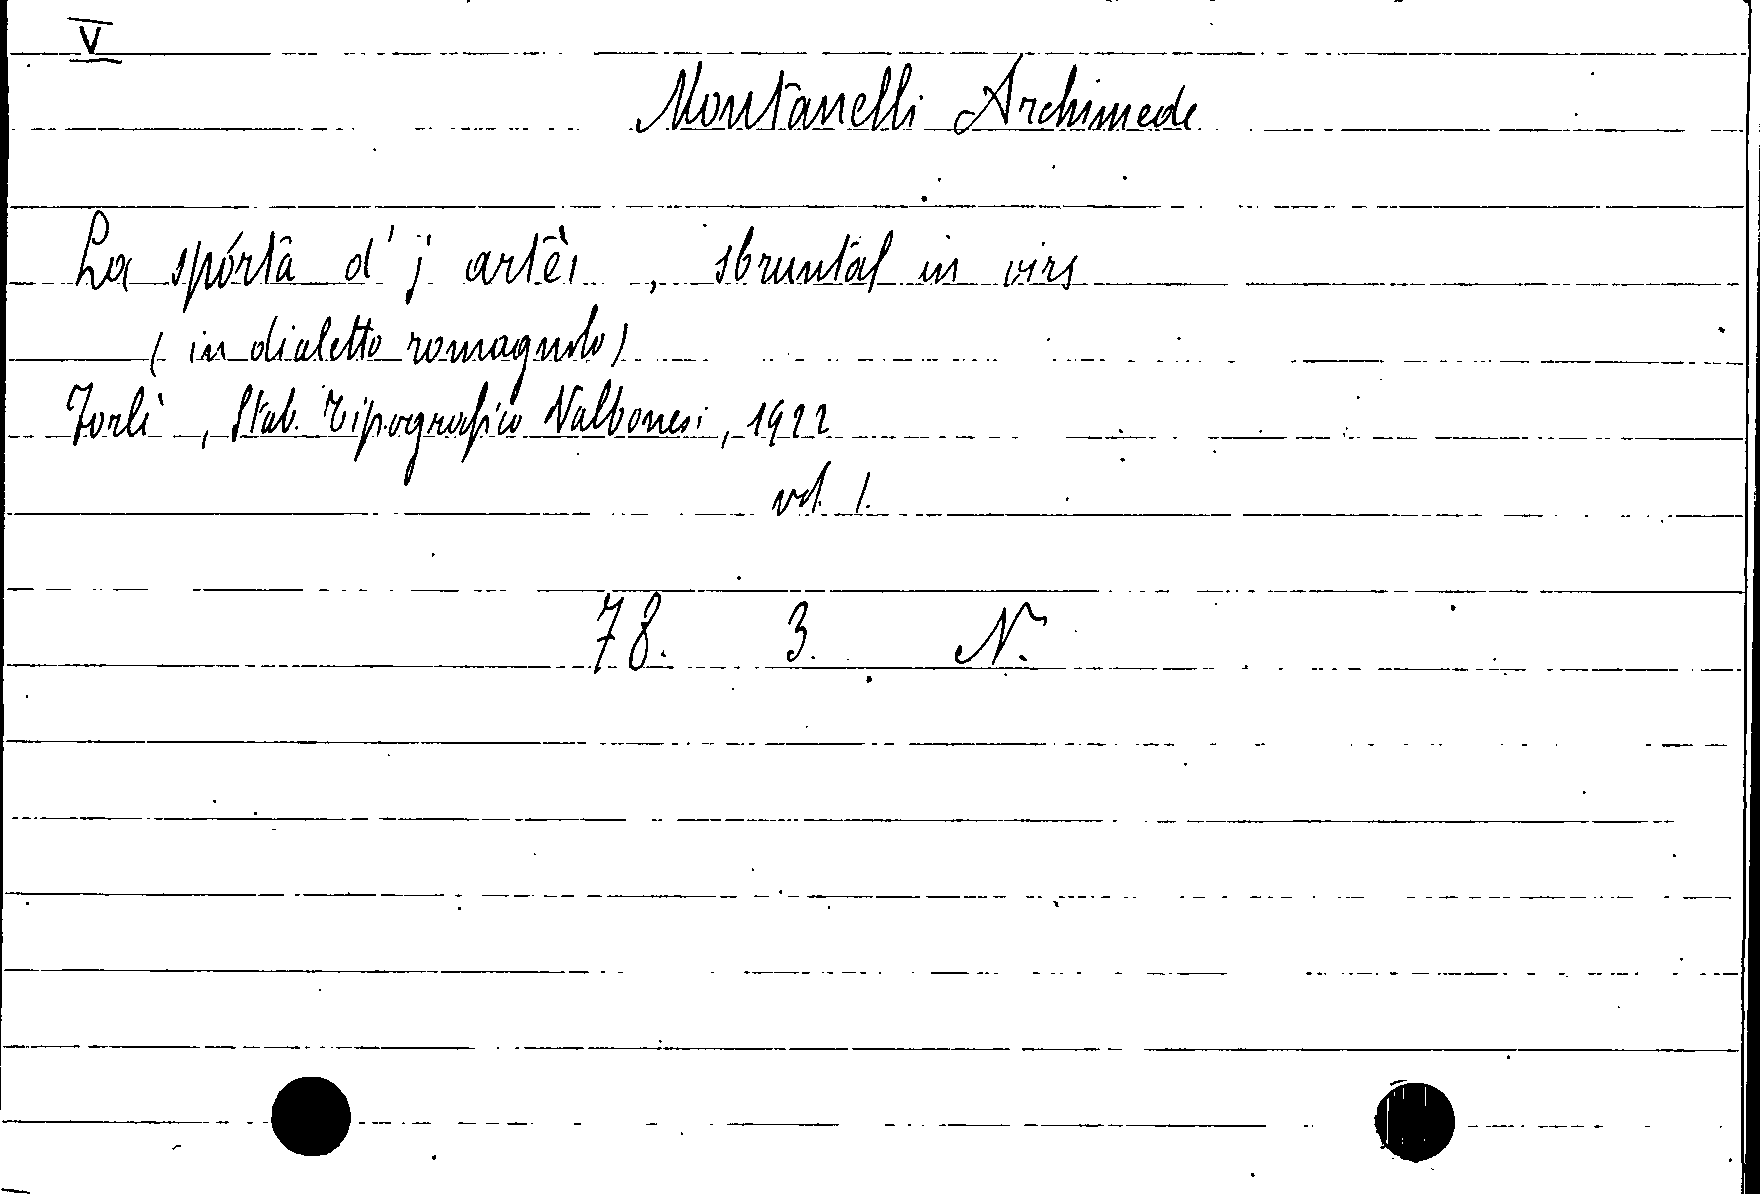 V
Montanelli Archimede
La spórta d' j artèi, sbruntál in virs
(in dialetto romagnolo)
Forlì, Stab. Tipografico Valbonesi, 1922
vol. 1.
78. 3. N.